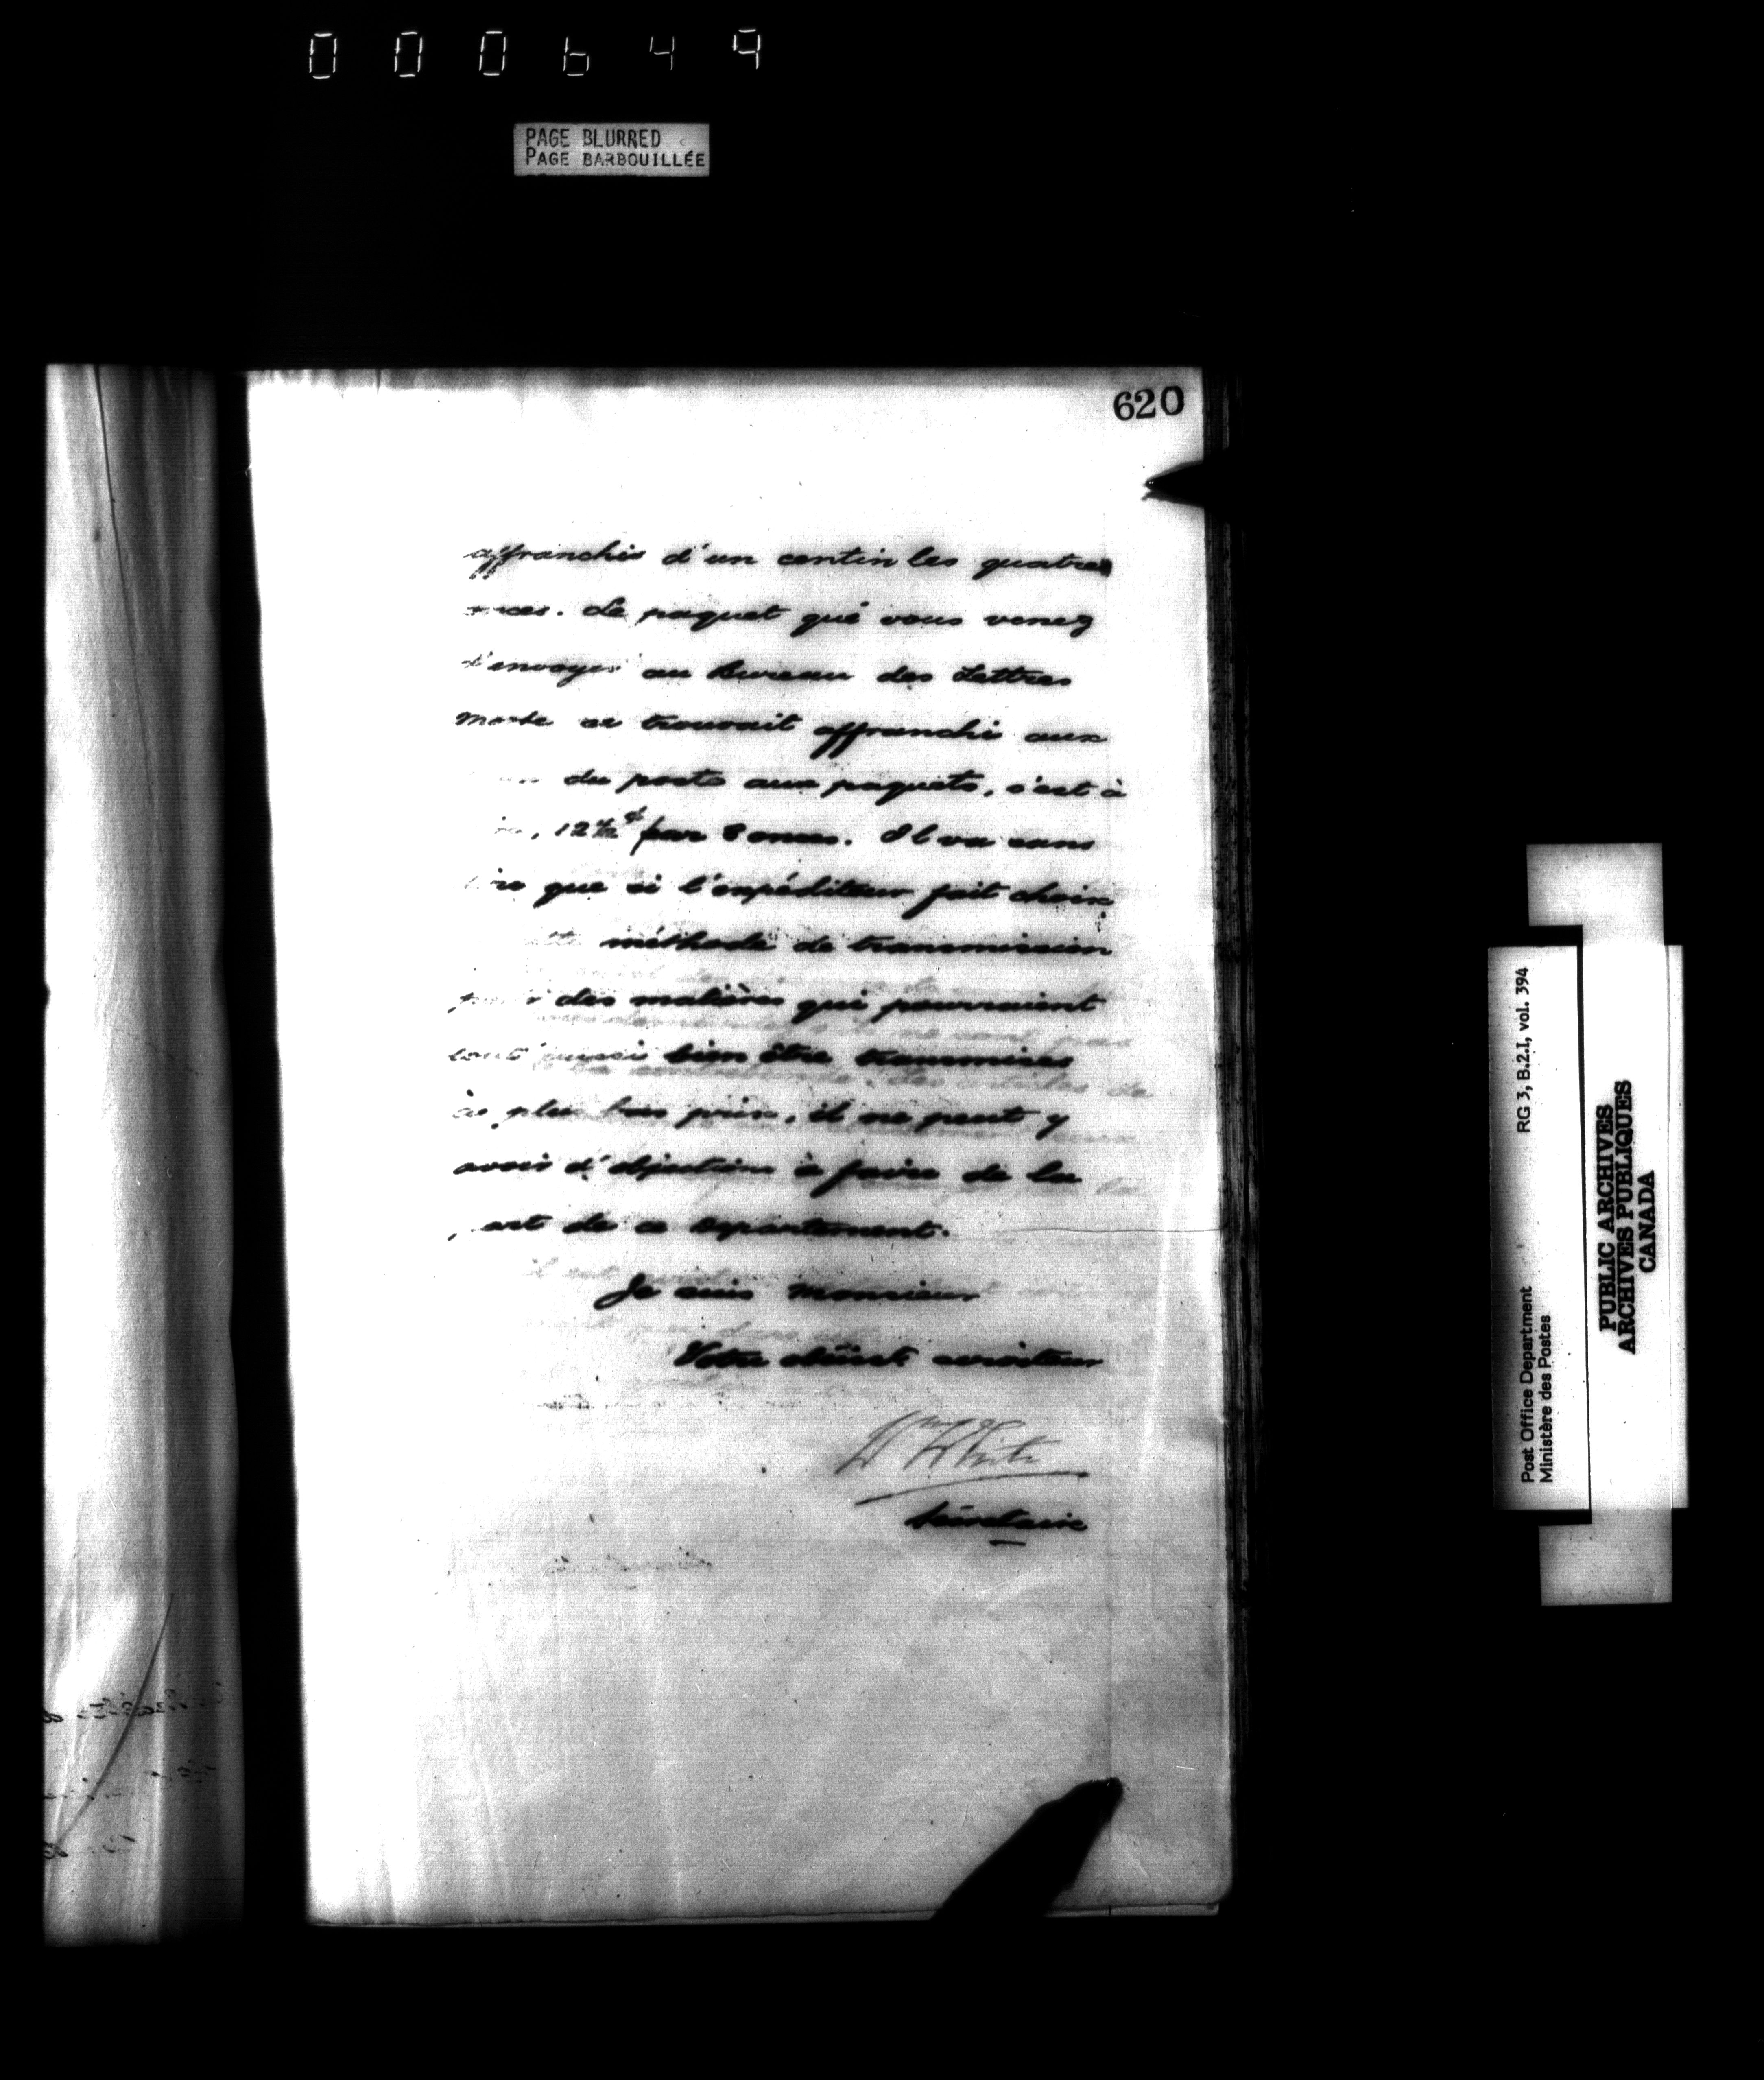 000649
PAGE BLURRED
PAGE BARBOUILLÉE
620
affranchis d'un centin les quatres
onces. Le paquet que vous venez
d'envoyer au Bureau des Lettres
morte se trouvait affranchi aux
du poste aux paquets, c'est à
12½¢ par 8 onces. Il va sans
dire que si l'expéditeur fait choix
méthode de transmission
pour des matières qui pourraient
tout aussi bien être transmises
à plus bas prix, il ne peut y
avoir d'objection à faire de la
part de ce Département.
Je suis Monsieur
Votre obéisst. serviteur
Wm White
Secrétaire
Post Office Department RG 3, B.2.I, vol. 394
Ministère des Postes
PUBLIC ARCHIVES
ARCHIVES PUBLIQUES
CANADA